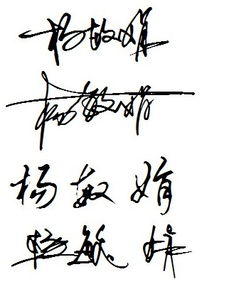 杨敏娟
杨敏娟
杨敏娟
杨敏娟